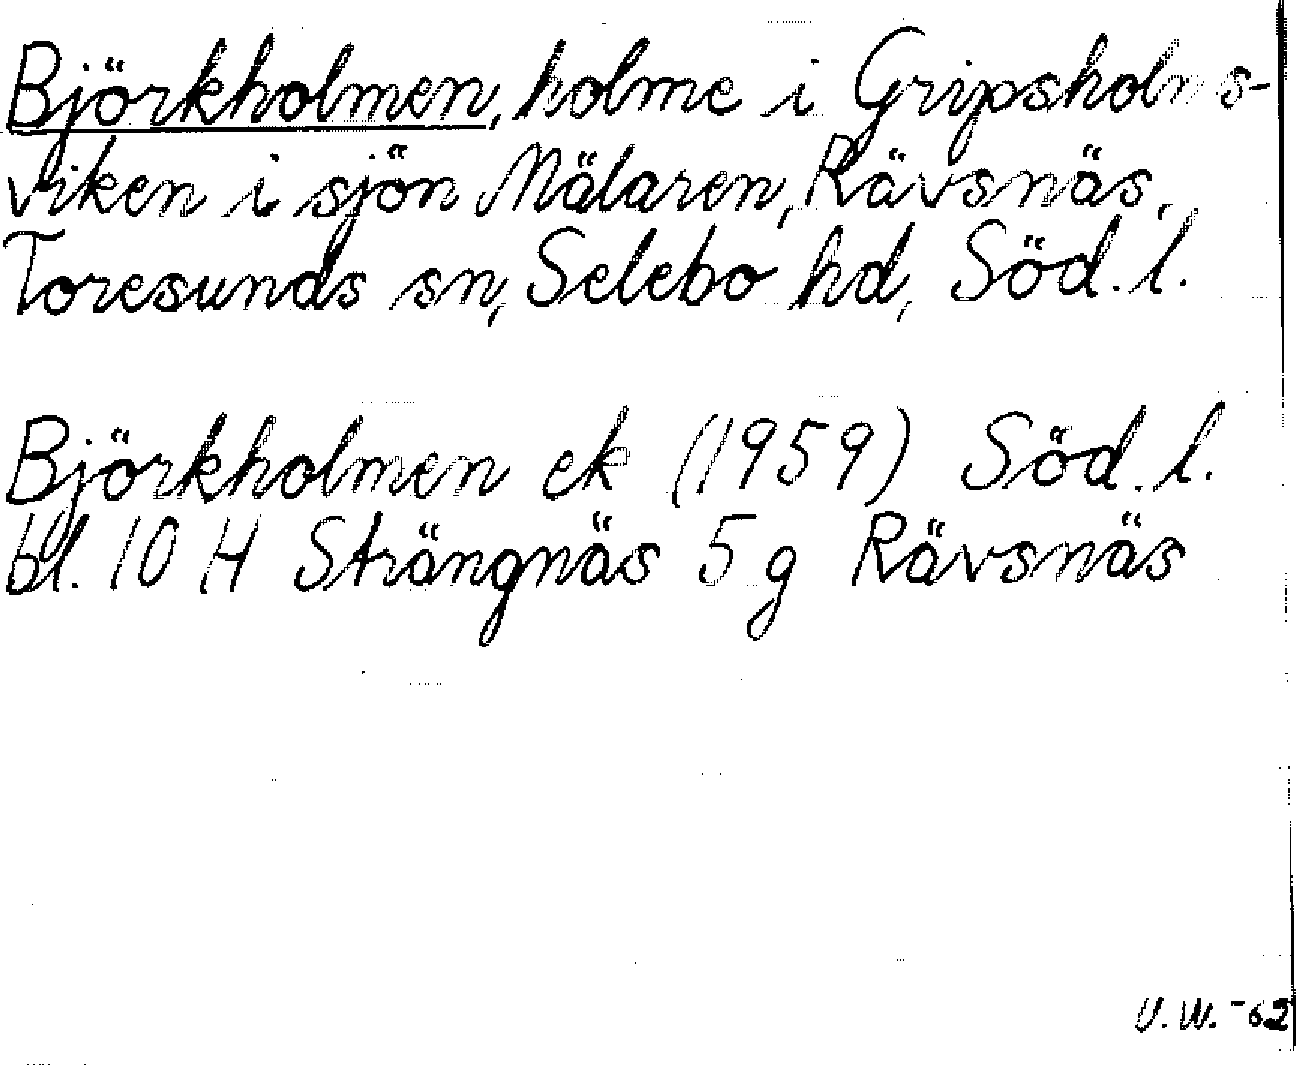 Björkholmen, holme i Gripsholms-
viken i sjön Mälaren, Rävsnäs,
Toresunds sn, Selebo hd, Söd. l.
Björkholmen ek (1959) Söd. l.
bl. 10 H Strängnäs 5 g Rävsnäs
V. W. -62